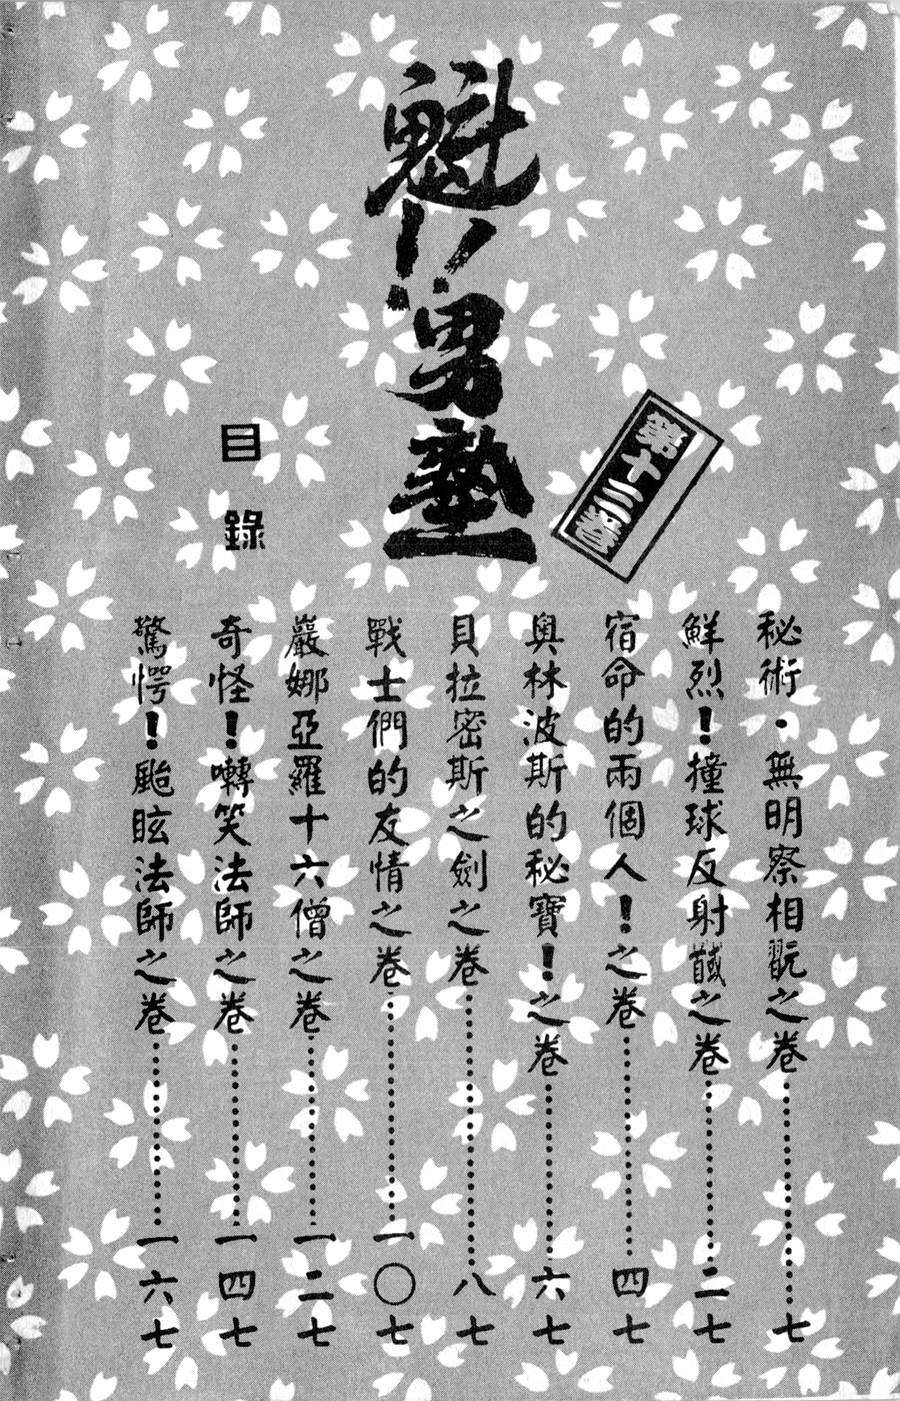 魁!!男塾
第十三卷
目錄
秘術・無明察相翫之卷……七
鮮烈!撞球反射馘之卷……二七
宿命的兩個人!之卷……四七
奧林波斯的秘寶!之卷……六七
貝拉密斯之劍之卷……八七
戰士們的友情之卷……一〇七
嚴娜亞羅十六僧之卷……一二七
奇怪!囀笑法師之卷……一四七
驚愕!颱眩法師之卷……一六七